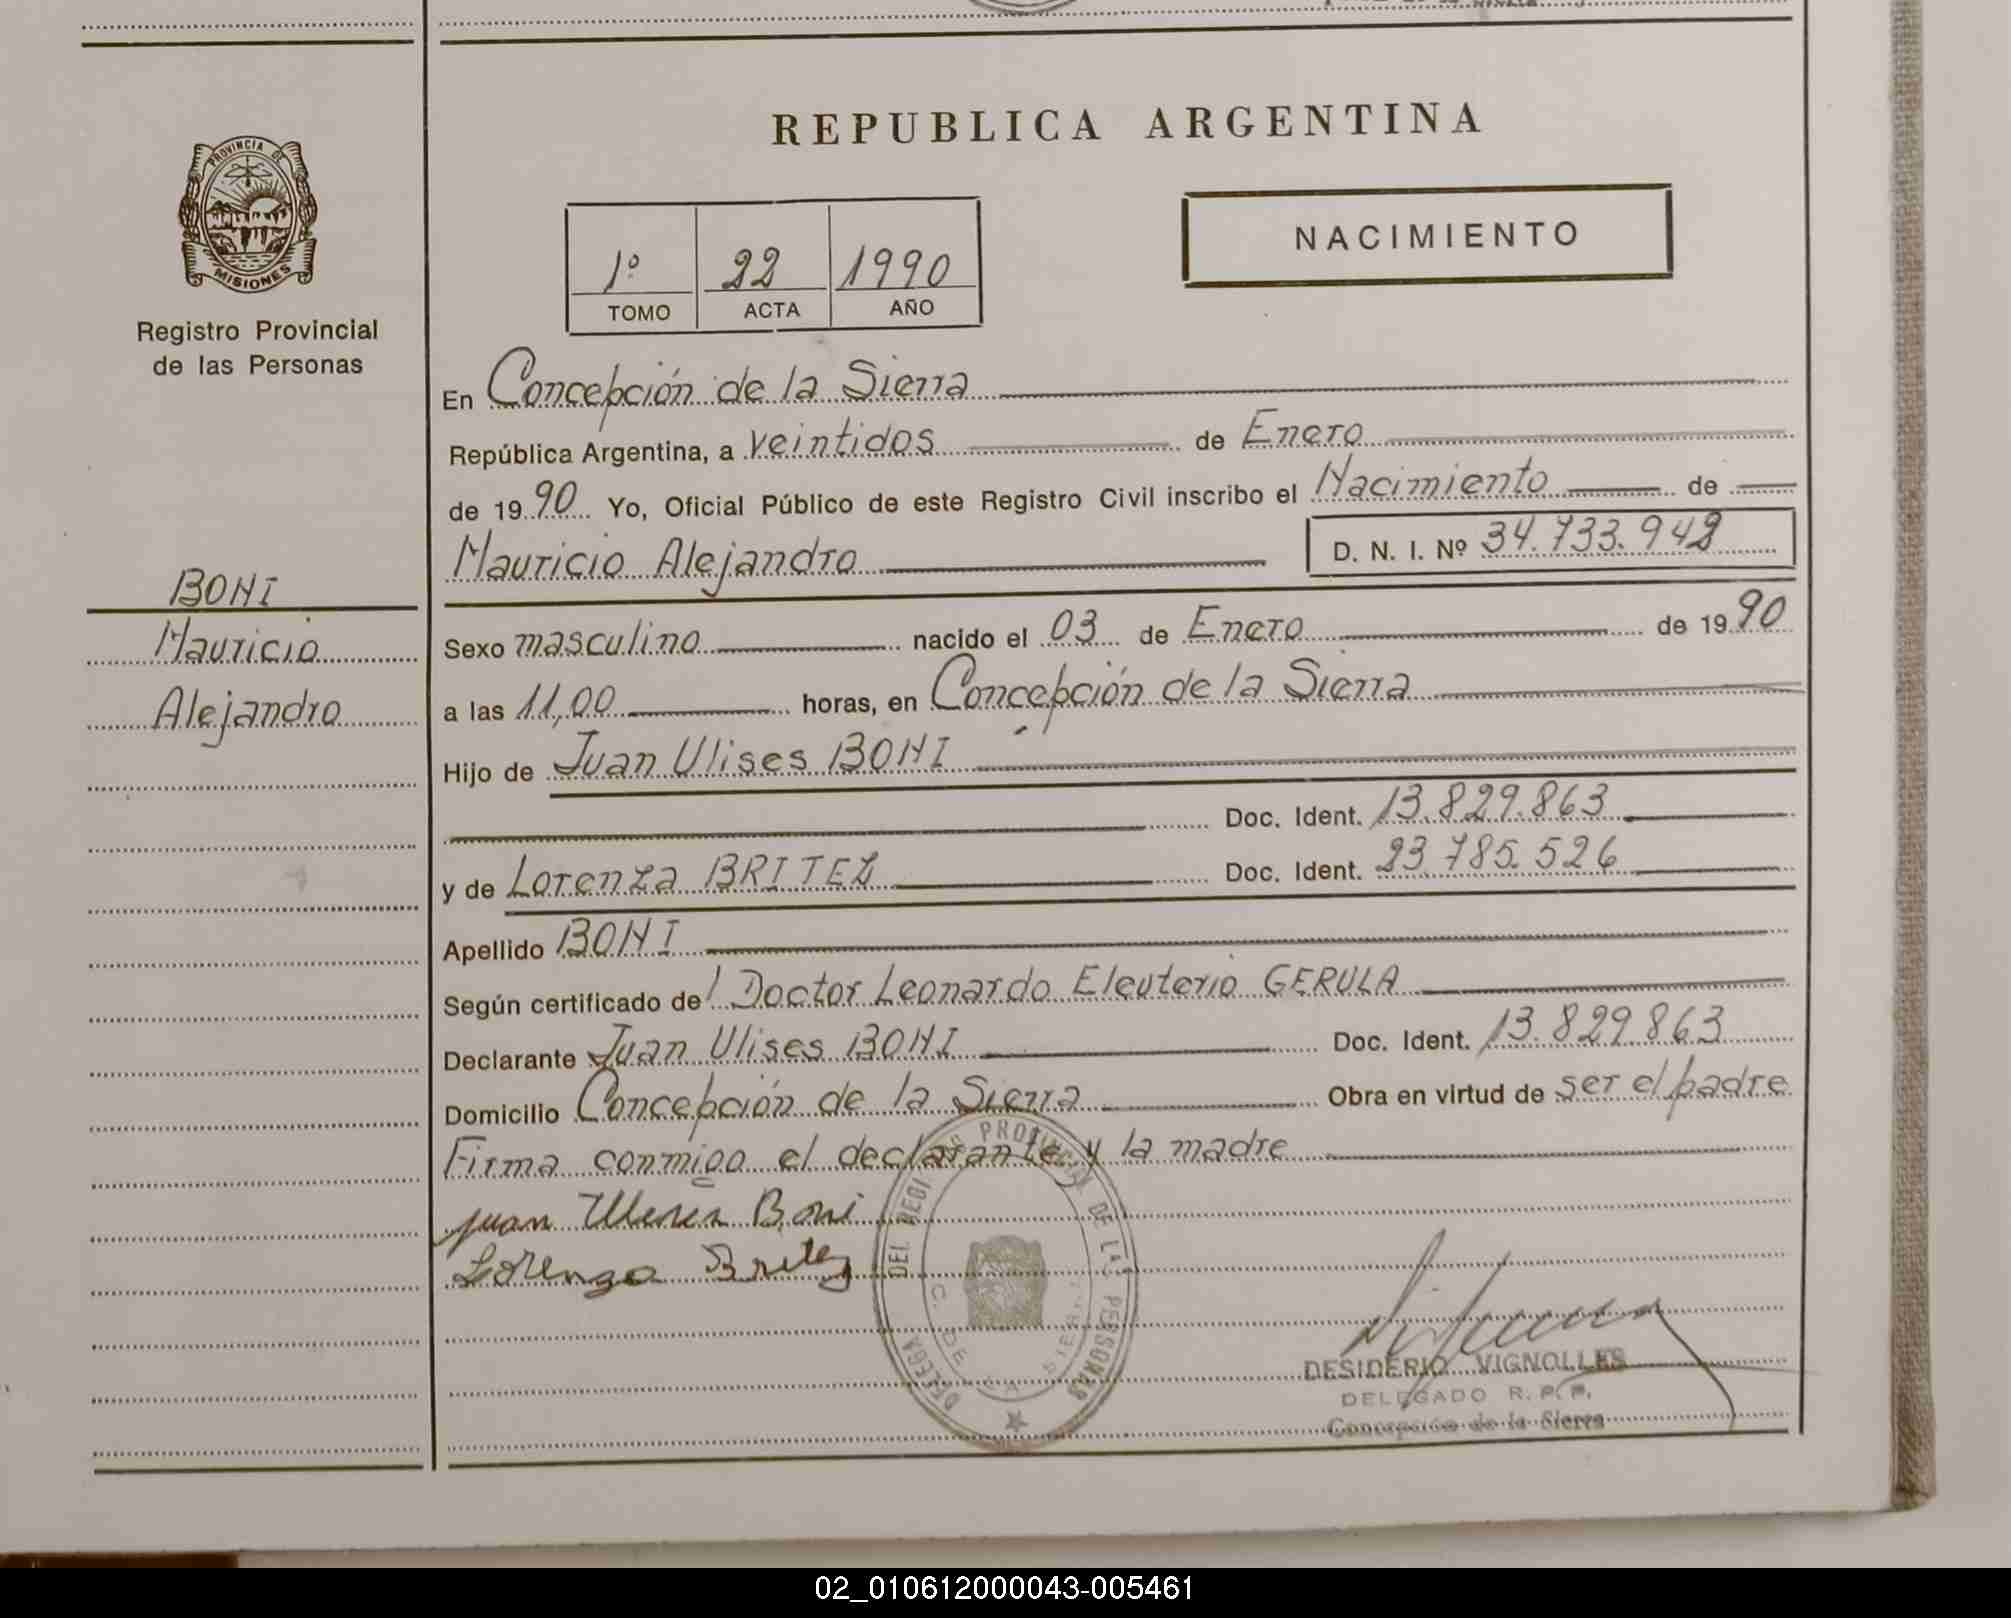 REPUBLICA ARGENTINA
PROVINCIA DE
MISIONES
Registro Provincial
de las Personas
NACIMIENTO
1º 22 1990
TOMO ACTA AÑO
En Concepción de la Sierra
República Argentina, a veintidos de Enero
de 1990 Yo, Oficial Público de este Registro Civil inscribo el Nacimiento de
Mauricio Alejandro D. N. I. Nº 34.733.942
BONI
Mauricio
Alejandro
Sexo masculino nacido el 03 de Enero de 1990
a las 11,00 horas, en Concepción de la Sierra
Hijo de Juan Ulises BONI
Doc. Ident. 13.829.863
y de Lorenza BRITEZ Doc. Ident. 23.785.526
Apellido BONI
Según certificado de l Doctor Leonardo Eleuterio GERULA
Declarante Juan Ulises BONI Doc. Ident. 13.829.863
Domicilio Concepción de la Sierra Obra en virtud de ser el padre
Firma conmigo el declarante y la madre
Juan Ulises Boni
Lorenza Britez
PROVINCIAL DE LAS PERSONAS
DESIDERIO VIGNOLLES
DELEGADO R. P. P.
Concepción de la Sierra
02_010612000043-005461